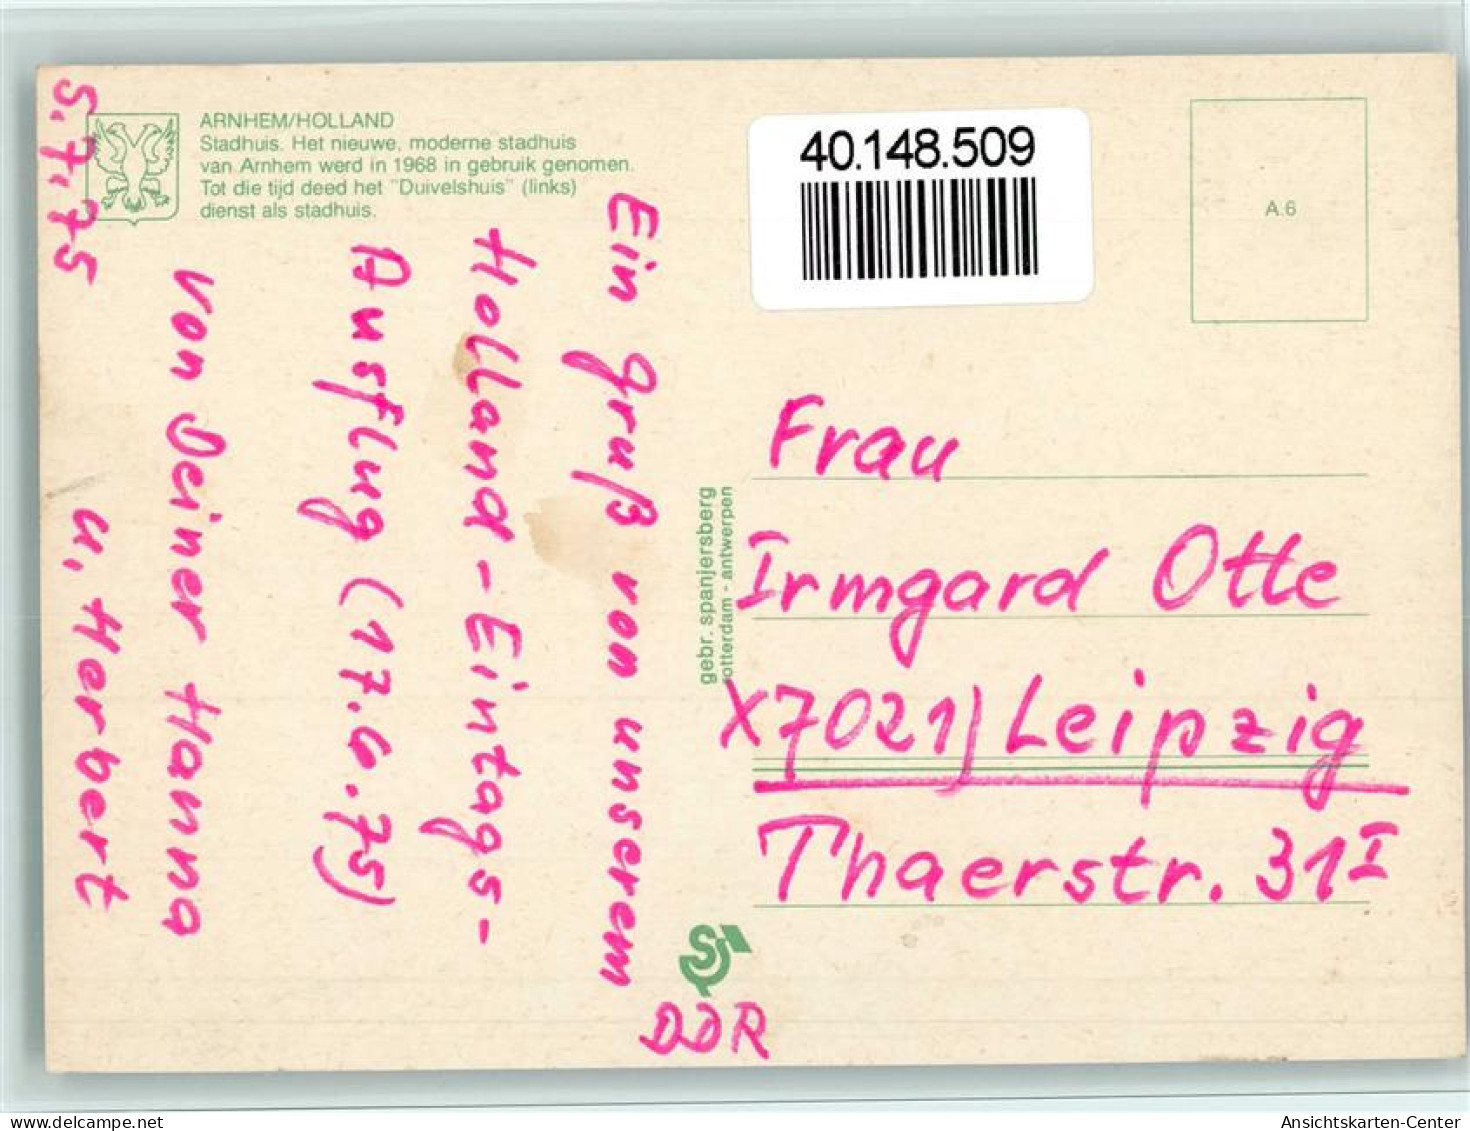 ARNHEM/HOLLAND
Stadhuis. Het nieuwe, moderne stadhuis
van Arnhem werd in 1968 in gebruik genomen.
Tot die tijd deed het "Duivelshuis" (links)
dienst als stadhuis.
40.148.509
A.6
5.7.75
Ein Gruß von unserem
Holland-Eintags-
Ausflug (17.6.75)
von Deiner Hanna
u. Herbert
gebr. spanjersberg
rotterdam - antwerpen
Frau
Irmgard Otte
X7021) Leipzig
Thaerstr. 31 I
DDR
delcampe.net
Ansichtskarten-Center